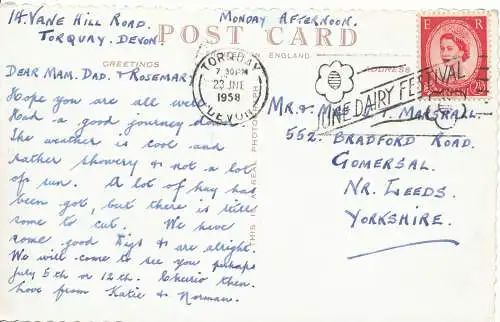 14. VANE HILL ROAD.
TORQUAY. DEVON
MONDAY AFTERNOON.
POST CARD
GREETINGS
ENGLAND
ADDRESS
E R
TORQUAY
7.30PM
23 JNE
1958
DEVON
JUNE DAIRY FESTIVAL
DEAR MAM. DAD. & ROSEMARY
Hope you are all well.
Had a good journey down
The weather is cool and
rather showery & not a lot
of sun. A lot of hay has
been got, but there is still
some to cut. We have
some good digs & are alright.
We will come to see you perhaps
July 5th or 12th. Cheerio then.
Love from Katie & Norman.
THIS IS A REAL PHOTOGRAPH
MR. & MRS T. MARSHALL.
552. BRADFORD ROAD.
GOMERSAL.
NR. LEEDS.
YORKSHIRE.